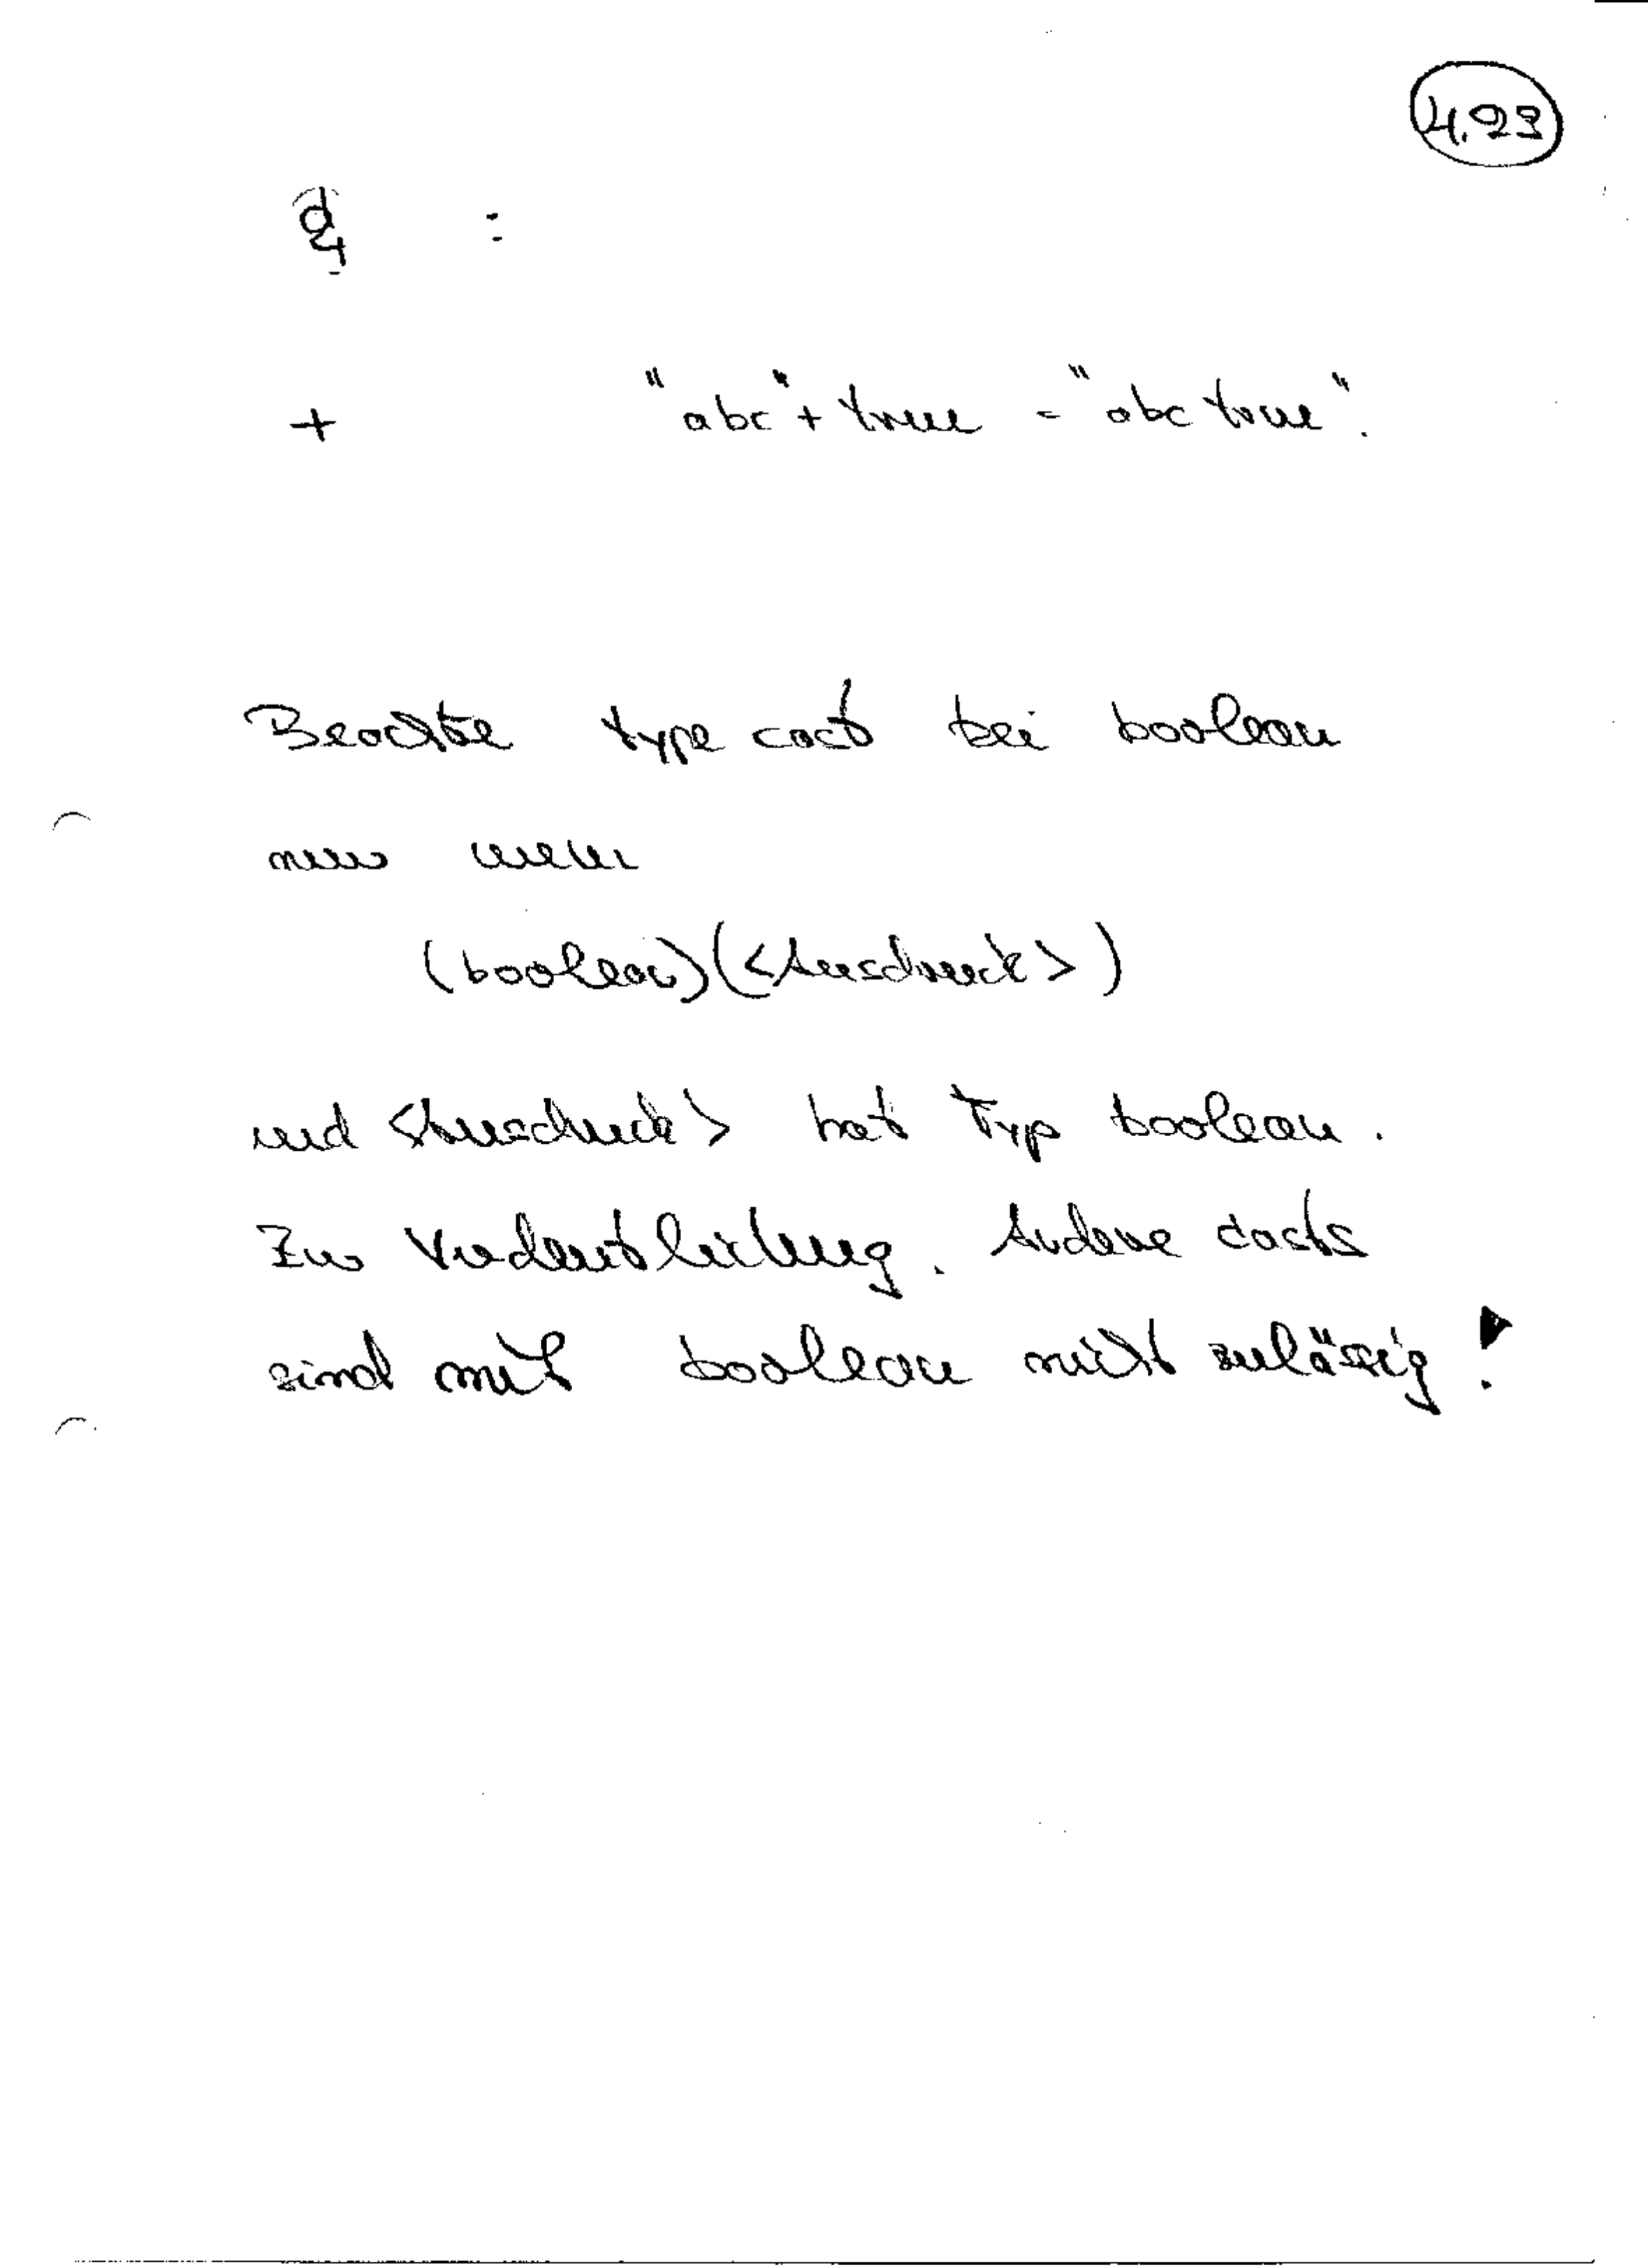 4.23
:
+ "abc" + true = "abc true".
Beachte type cast bei boolean
nur wenn
(boolean)(<Ausdruck>)
und <Ausdruck> hat Typ boolean.
Zur Verdeutlichung. Andere casts
sind mit boolean nicht zulässig!